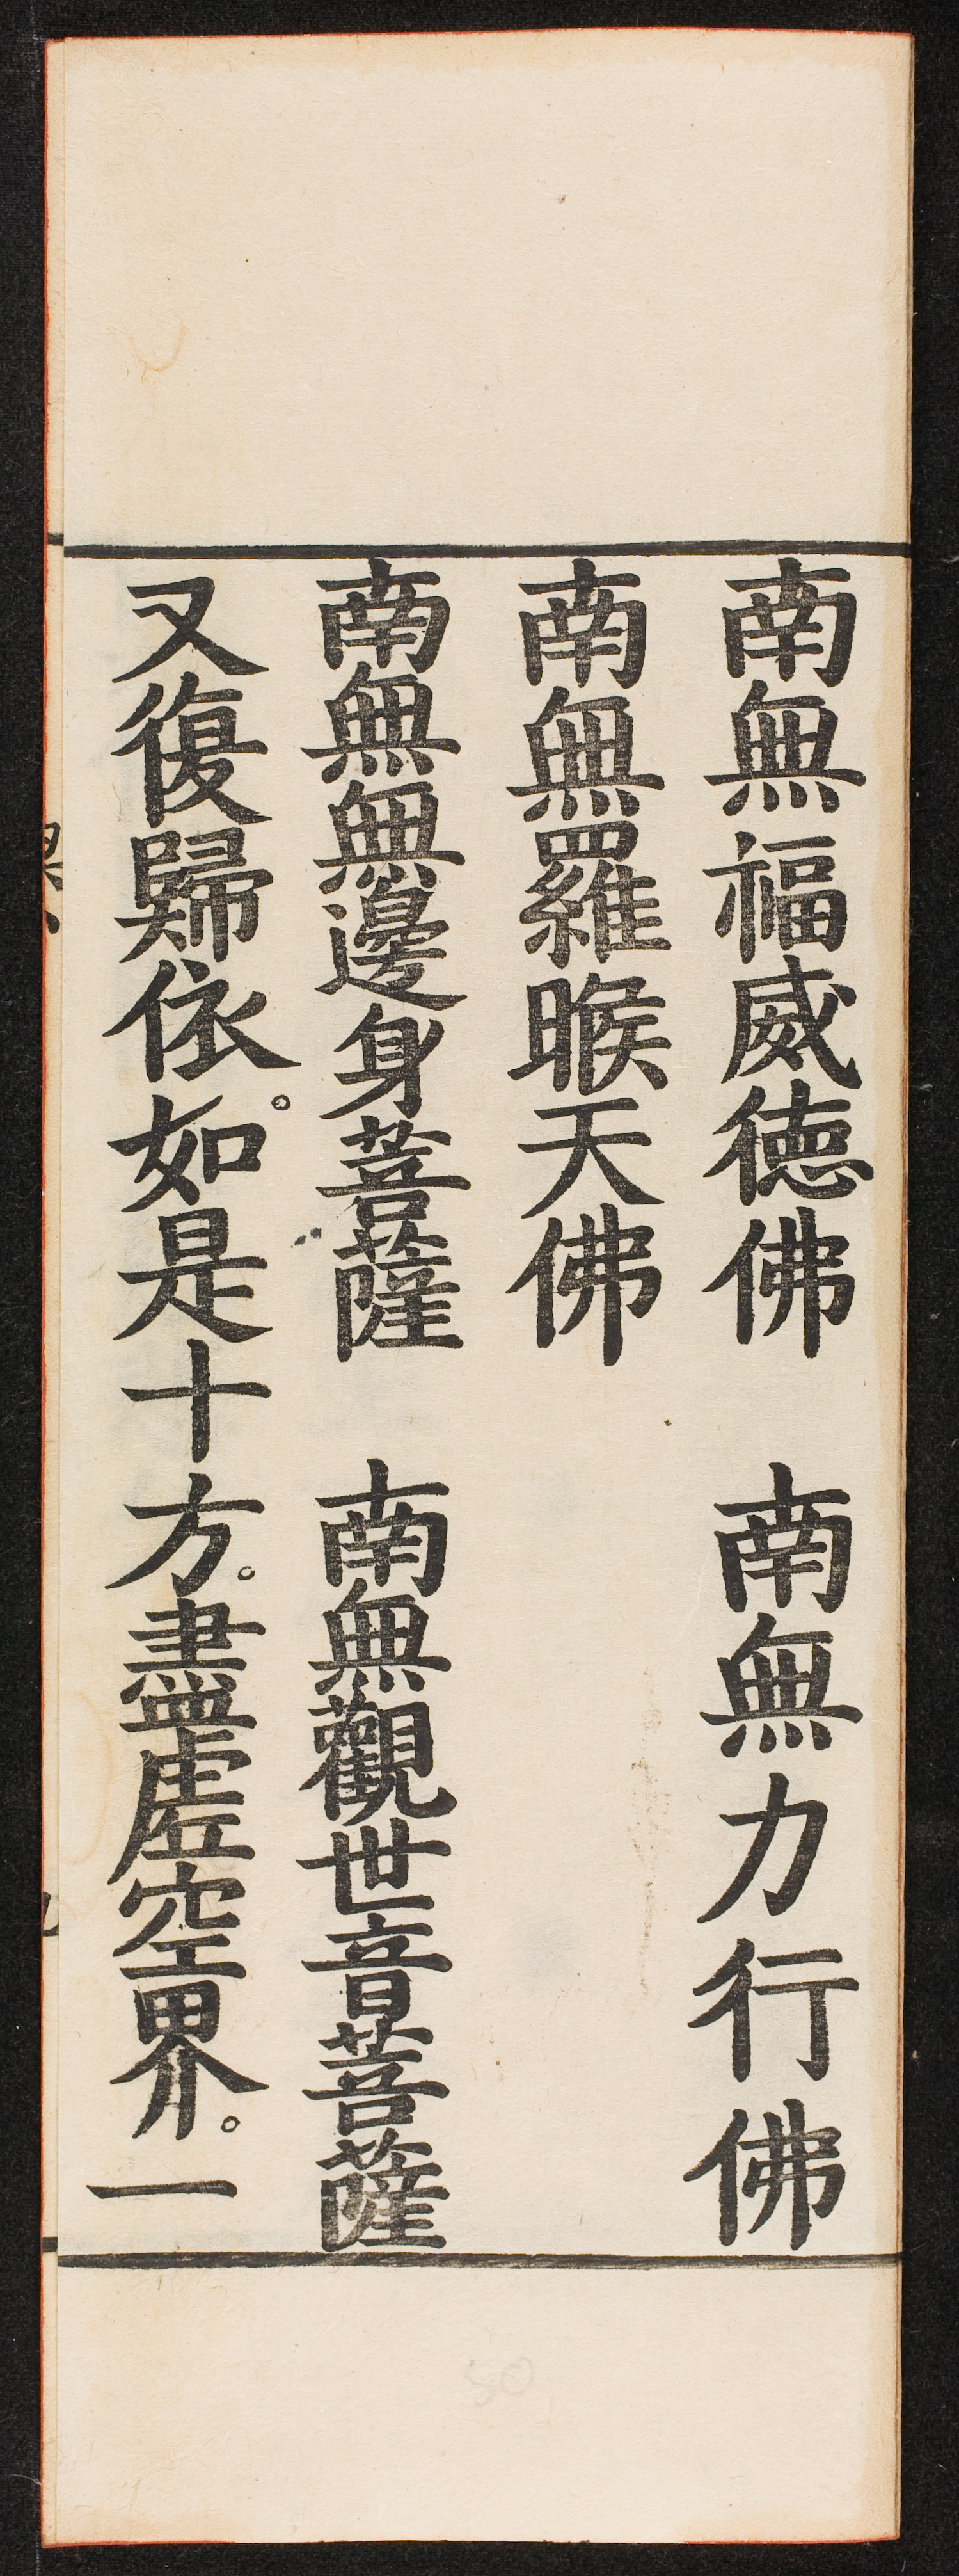 南無福威德佛　南無力行佛
南無羅睺天佛
南無無邊身菩薩　南無觀世音菩薩
又復歸依。如是十方。盡虛空界。一